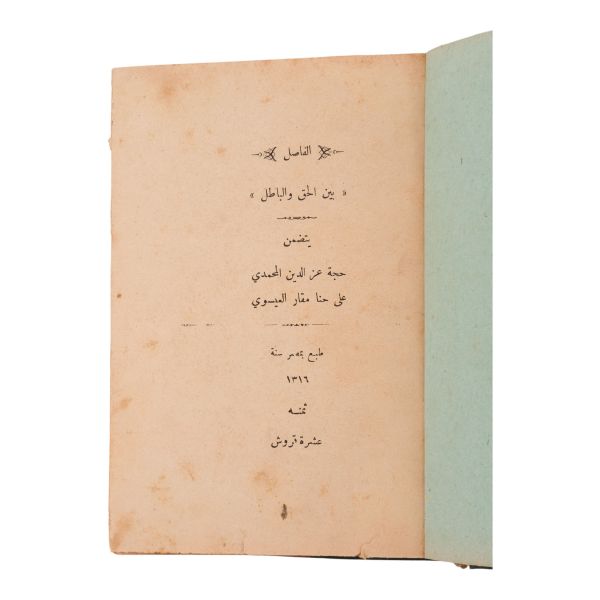 الفاصل
« بين الحق والباطل »
يتضمن
حجة عز الدين المحمدي
على حنا مقار العيسوي
طبع بمصر سنة
١٣١٦
ثمنه
عشرة قروش